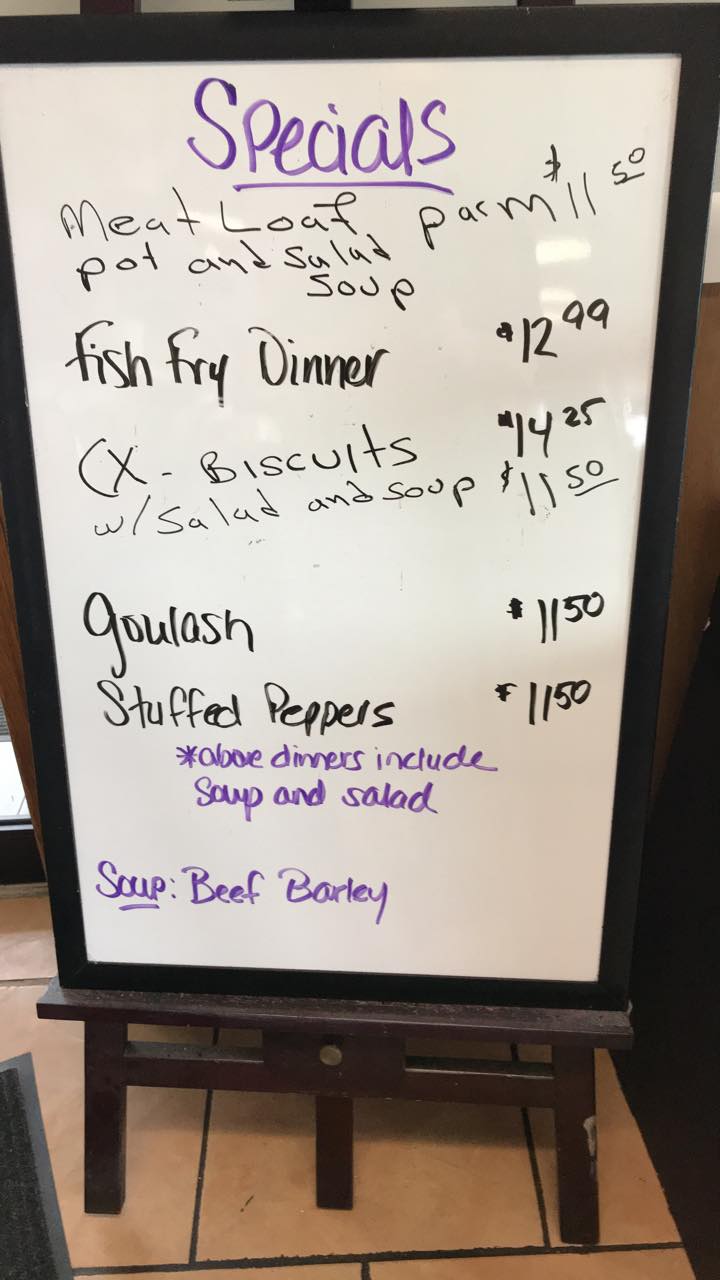 Specials
Meat Loaf parm $11 50
pot and salad
soup
Fish Fry Dinner $12 99
$14 25
CX - Biscuits
w/ Salad and soup $11 50
Goulash $11 50
Stuffed Peppers $11 50
*above dinners include
Soup and salad
Soup: Beef Barley